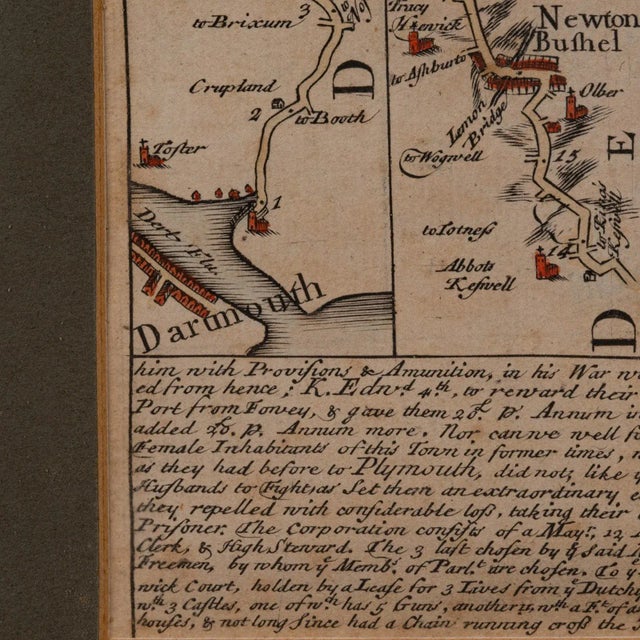 to Brixum
3
Crupland
2
to Booth
D
Toster
1
Dart Flu.
Dartmouth
Tracy
Hawick
Newton
Bushel
to Ashburto
Olber
Lemon
Bridge
to Wogwell
15
E
to Totness
to Kings
Keswell
Abbots
Keswell
14
D
him with Proviſions & Amunition, in his War
ed from hence; K. Edwd. 4th., to reward their
Port from Fowey, & gave them 20£ pr. Annum in
added 20£. p. Annum more. Nor can we well
Female Inhabitants of this Town in former times,
as they had before to Plymouth, did not, like
Huſbands to Fight, as ſet them an extraordinary
they repelled with conſiderable loſs, taking their
Priſoner. The Corporation conſiſts of a Mayr, 12
Clerk, & High Steward. The 3 laſt choſen by ye ſaid
Freemen, by whom ye Membs. of Parlt. are choſen. To
wick Court, holden by a Leaſe for 3 Lives from ye Dutchy
wth. 3 Caſtles, one of wch. has 5 Guns, another 11, wth a Ft. of
houſes, & not long Since had a Chain running croſs the